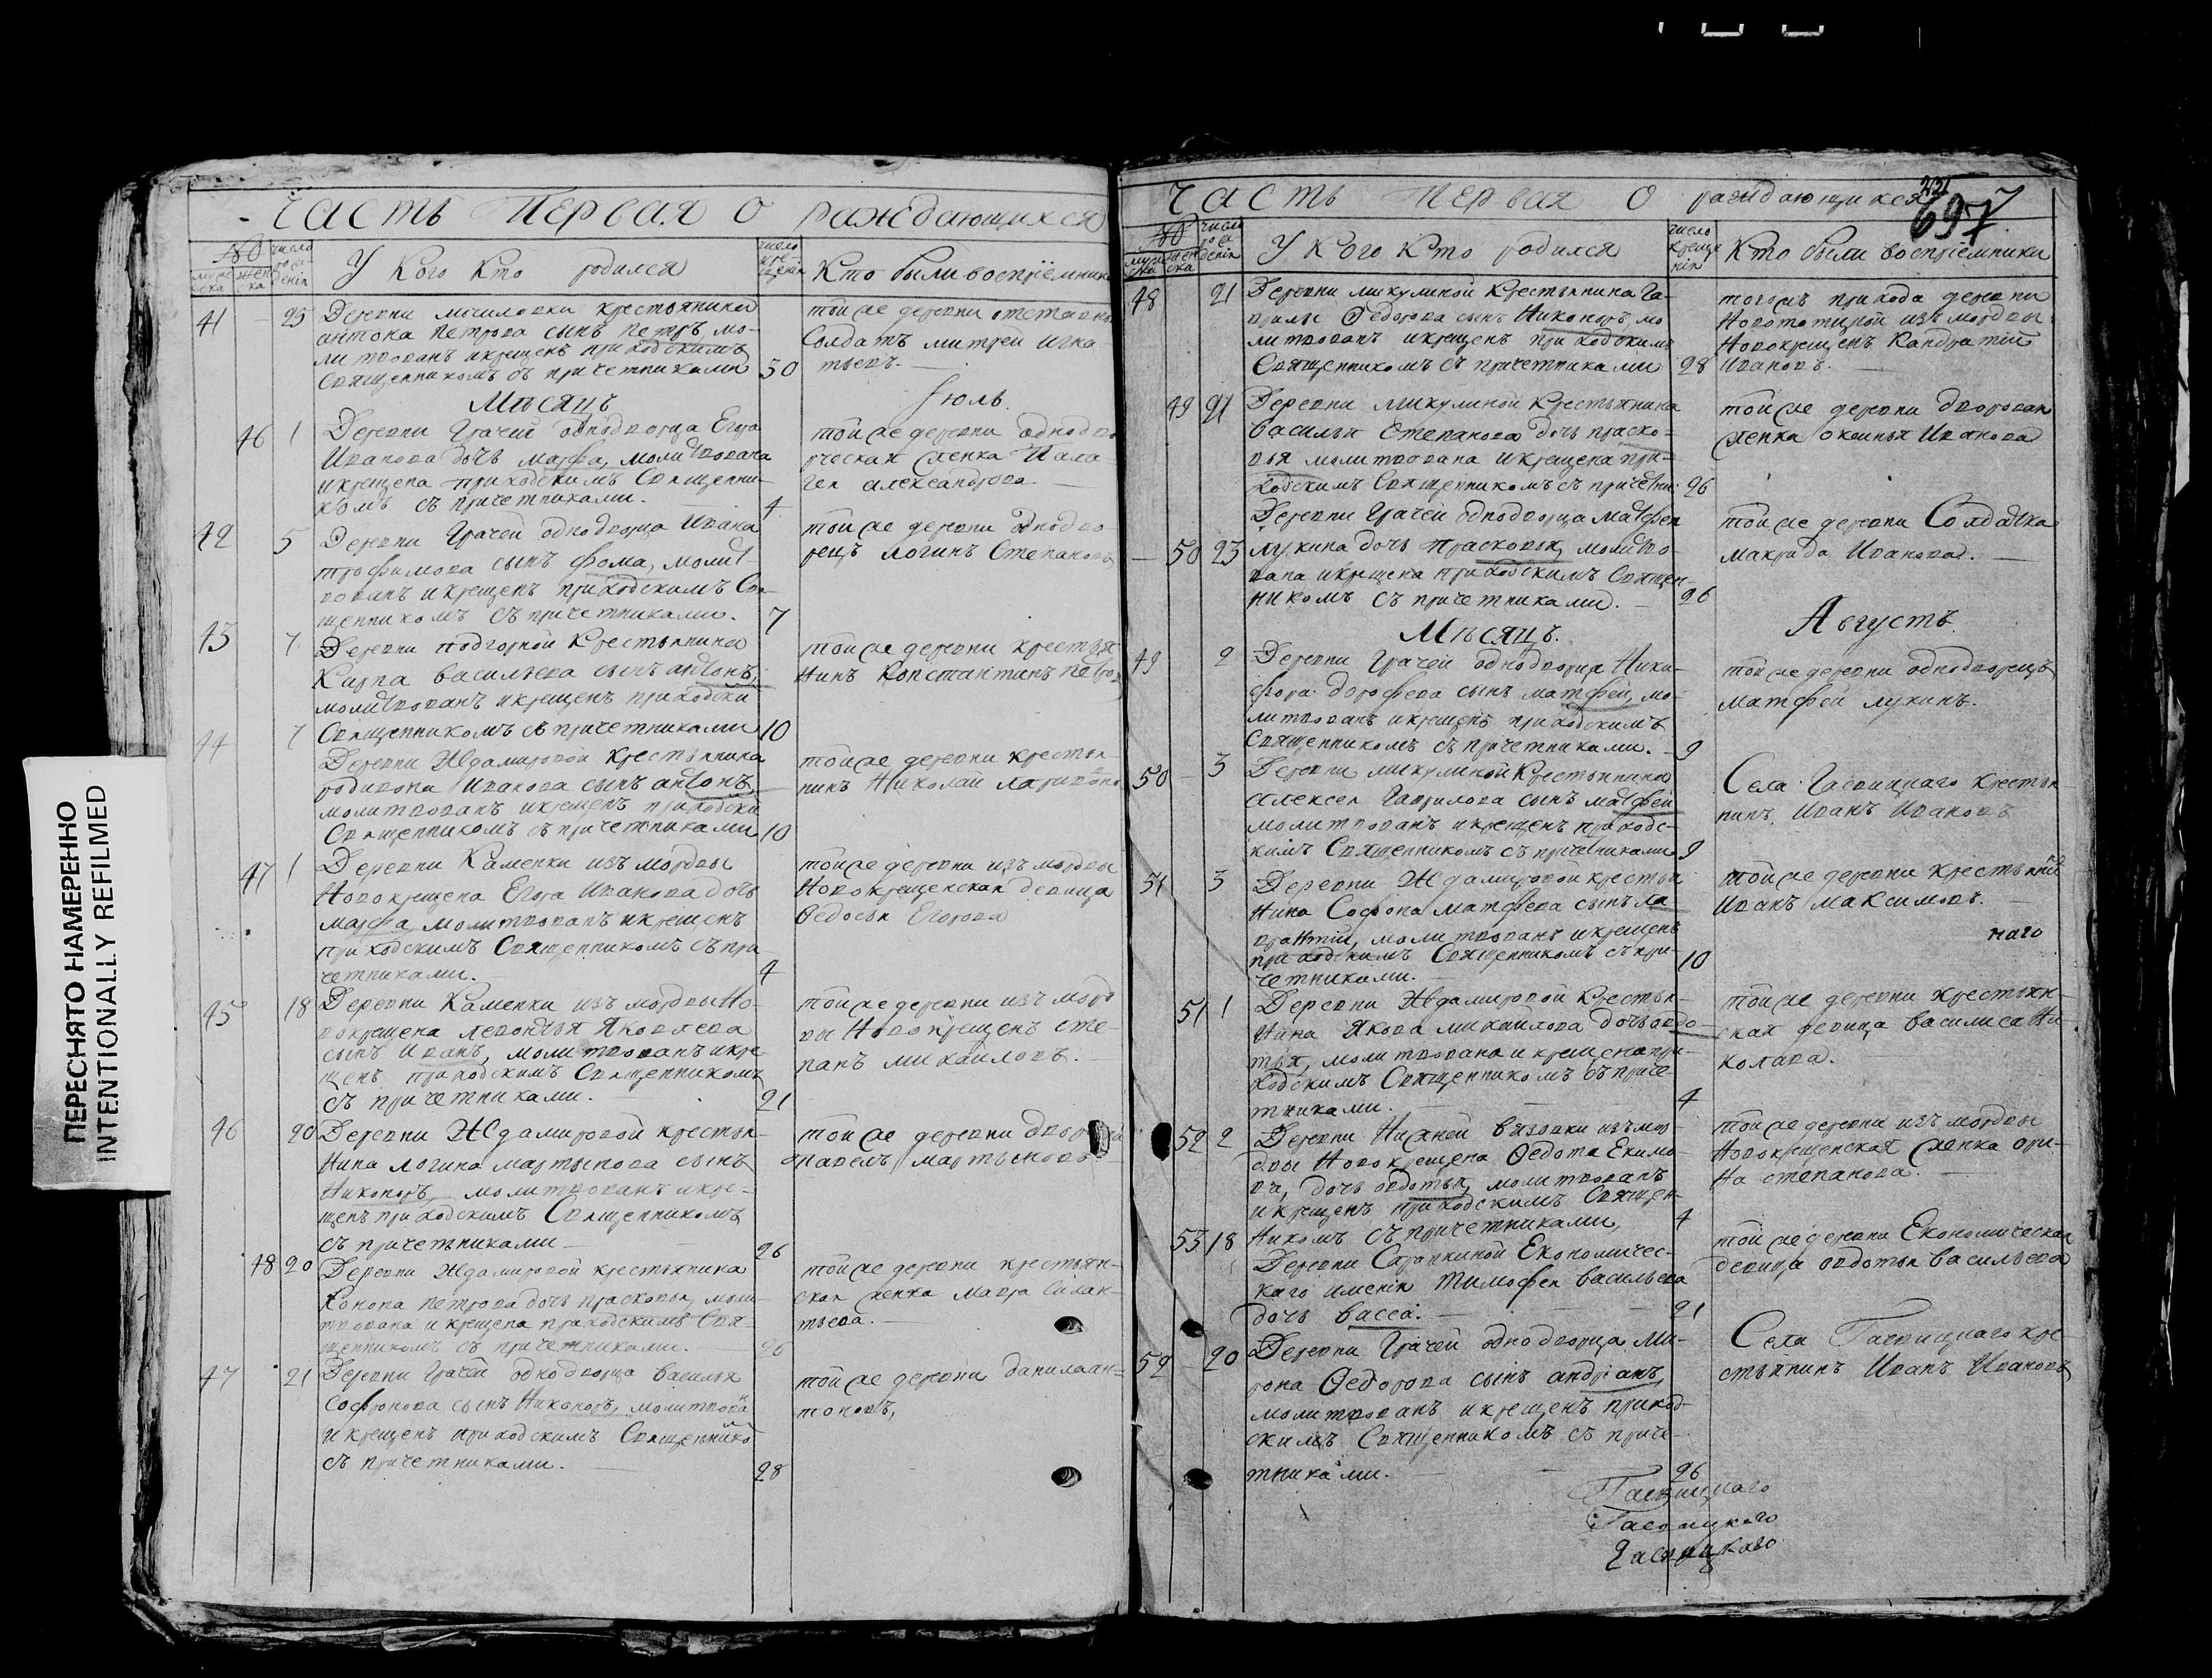 ПЕРЕСНЯТО НАМЕРЕННО
INTENTIONALLY REFILMED
Часть первая о раждающихся
№
число рождения
мужеска
женска
У кого кто родился
число крещения
Кто были воспріемники
41
25
Деревни крестьянина
антона петрова сынъ петръ, мо-
литвованъ икрещенъ приходскимъ
Священникомъ съ причетниками
30
тойже деревни отставно
Солдатъ митрей игна
тьевъ.
Мѣсяцъ
Іюль.
46
1
Деревни Грачей однодворца Егора
Иванова дочь марфа, молитвована
икрещена приходскимъ Священни-
комъ съ причетниками.
4
тойже деревни однодво
рческая женка Пала-
гея александрова.
42
5
Деревни Грачей однодворца Ивана
трофимова сынъ фома, молит-
вованъ икрещенъ приходскимъ Свя-
щенникомъ съ причетниками.
7
тойже деревни однодво
рецъ логинъ Степановъ
43
7
Деревни подгорной Крестьянина
Карпа васильева сынъ антонъ,
молитвованъ икрещенъ приходски
Священникомъ съ причетниками
10
тойже деревни крестья
нинъ Константинъ петров
44
7
Деревни Ждамировой Крестьянина
родивона Иванова сынъ антонъ,
молитвованъ икрещенъ приходски
Священникомъ съ причетниками
10
тойже деревни крестья-
нинъ Николай ларивоно
47
1
Деревни Каменки изъ мордвы
Новокрещена Егора Иванова дочь
марфа, молитвованъ икрещенъ
приходскимъ Священникомъ съ при
четниками.
4
тойже деревни изъ мордвы
Новокрещенская девица
Федосья Егорова
45
18
Деревни Каменки изъ мордвы Но-
вокрещена левонтья Яковлева
сынъ Иванъ, молитвованъ икре
щенъ приходскимъ Священникомъ
съ причетниками.
21
тойже деревни изъ морд
вы Новокрещенъ сте-
панъ михайловъ.
46
20
Деревни Ждамировой крестья-
нина логина мартынова сынъ
Никоноръ, молитвованъ икре-
щенъ приходскимъ Священникомъ
съ причетниками
26
тойже деревни
павелъ мартыновъ
48
20
Деревни Ждамировой крестьянина
Конона петрова дочь прасковья, моли-
твована и крещена приходскимъ Свя-
щенникомъ съ причетниками.
26
тойже деревни крестьян-
ская женка мавра Силан-
тьева.
47
21
Деревни Грачей однодворца василья
Софронова сынъ Никоноръ, молитвован
икрещенъ приходскимъ Священнико
съ причетниками.
28
тойже деревни данила ан-
тоновъ,
Часть первая о раждающихся
221
697
№
мужеска
женска
число рождения
У кого кто родился
число крещения
Кто были воспріемники
48
21
Деревни микулиной Крестьянина Га-
врилы Федорова сынъ Никоноръ, мо
литвованъ икрещенъ приходскимъ
Священникомъ съ причетниками
28
тогожъ прихода деревни
изъ мордвы
Новокрещенъ Кандратий
Ивановъ.
49
21
Деревни микулиной Крестьянина
василья Степанова дочь праско-
вья молитвована икрещена при-
ходскимъ Священникомъ съ причетни:
26
тойже деревни дворован
женка оксинья Иванова
50
23
Деревни Грачей однодворца матфея
лукина дочь прасковья, молитво-
вана икрещена приходскимъ Священ-
никомъ съ причетниками.
26
тойже деревни Солдатка
макрида Иванова.
Мѣсяцъ.
Августъ.
49
2
Деревни Грачей однодворца Ники-
фора дорофеева сынъ матфей, мо-
литвованъ икрещенъ приходскимъ
Священникомъ съ причетниками.
9
тойже деревни однодворецъ
матфей лукинъ.
50
3
Деревни микулиной Крестьянина
алексея Гаврилова сынъ матфей
молитвованъ икрещенъ приходс-
кимъ Священникомъ съ причетниками
9
Села крестья
нинъ Иванъ Ивановъ
51
3
Деревни Ждамировой крестья
нина Софона матфеева сынъ ла
врантий, молитвованъ икрещенъ
приходскимъ Священникомъ съ при-
четниками.
10
тойже деревни крестьянинъ
Иванъ максимовъ.
наго
51
1
Деревни Ждамировой Крестья-
нина Якова михайлова дочь овдо-
тья, молитвована икрещена при-
ходскимъ Священникомъ съ приче-
тниками.
4
тойже деревни крестьян-
ская девица василиса Ни-
колаева.
52
2
Деревни Нижней вязовки изъ мор-
двы Новокрещена Федота Екимо-
ва, дочь овдотья, молитвованъ
икрещенъ приходскимъ Священ-
никомъ съ причетниками,
4
тойже деревни изъ мордвы
Новокрещенская женка ори-
на степанова.
53
18
Деревни Сарапкиной Економичес-
каго имения Тимофея васильева
дочь васса.
21
тойже деревни Економическая
девица овдотья васильева
52
20
Деревни Грачей однодворца Ми-
рона Федорова сынъ андрianъ,
молитвованъ икрещенъ приход-
скимъ Священникомъ съ приче-
тниками.
26
Села кре-
стьянинъ Иванъ Ивановъ